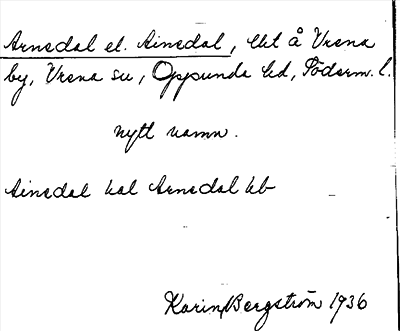 Arnedal el. Ainedal, lht å Vrena
by, Vrena sn, Oppunda hd, Söderm. l.
nytt namn.
Ainedal kal Arnedal kb
Karin Bergström 1936